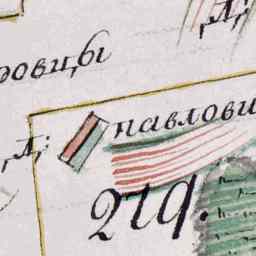 ,Д;
ровцы
павлови
,Д;
219.